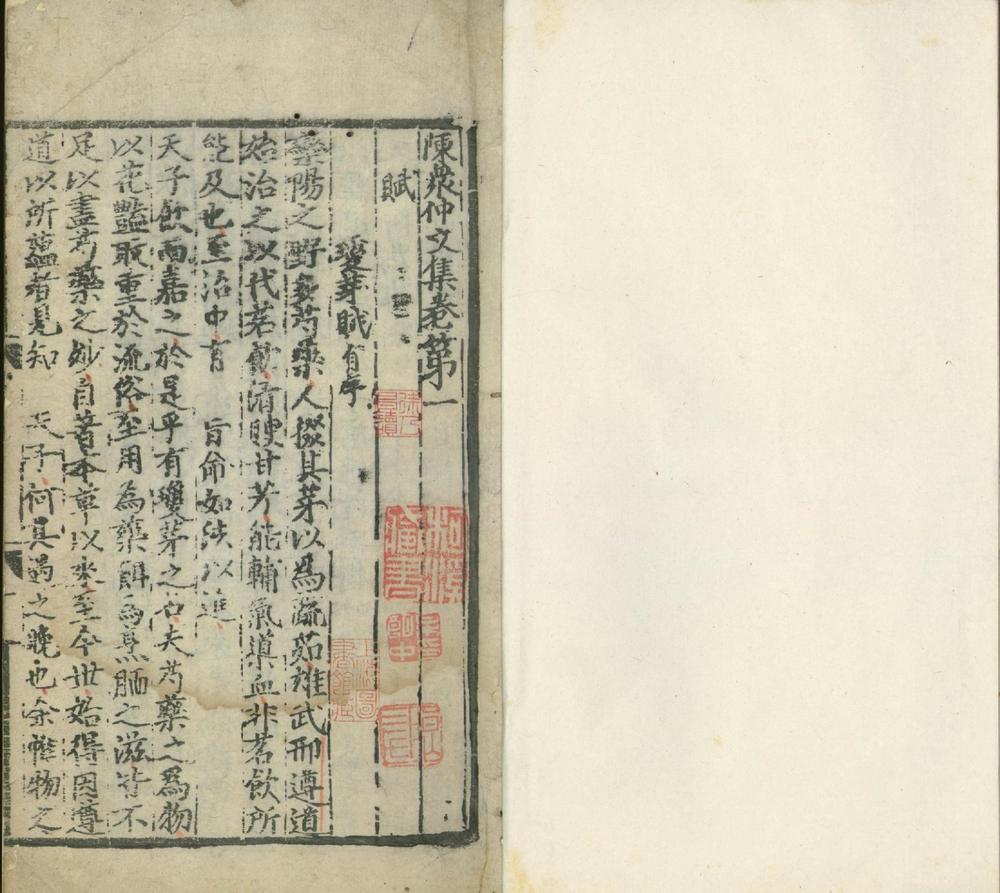 陳眾仲文集卷第一
賦
瓊芽賦有序
灤陽之野多芍藥人掇其芽以為蔬茹雄武邢遵道
始治之以代茗飲清腴甘芳能輔氣導血非茗飲所
能及也至治中有 旨命如法以進
天子飲而嘉之於是乎有瓊芽之名夫芍藥之為物
以花豔取重於流俗至用為藥餌為烹胹之滋皆不
足以盡芍藥之妙自昔本草以來至今世始得因遵
道以所蘊者見知 天子何其遇之晚也余惟物之